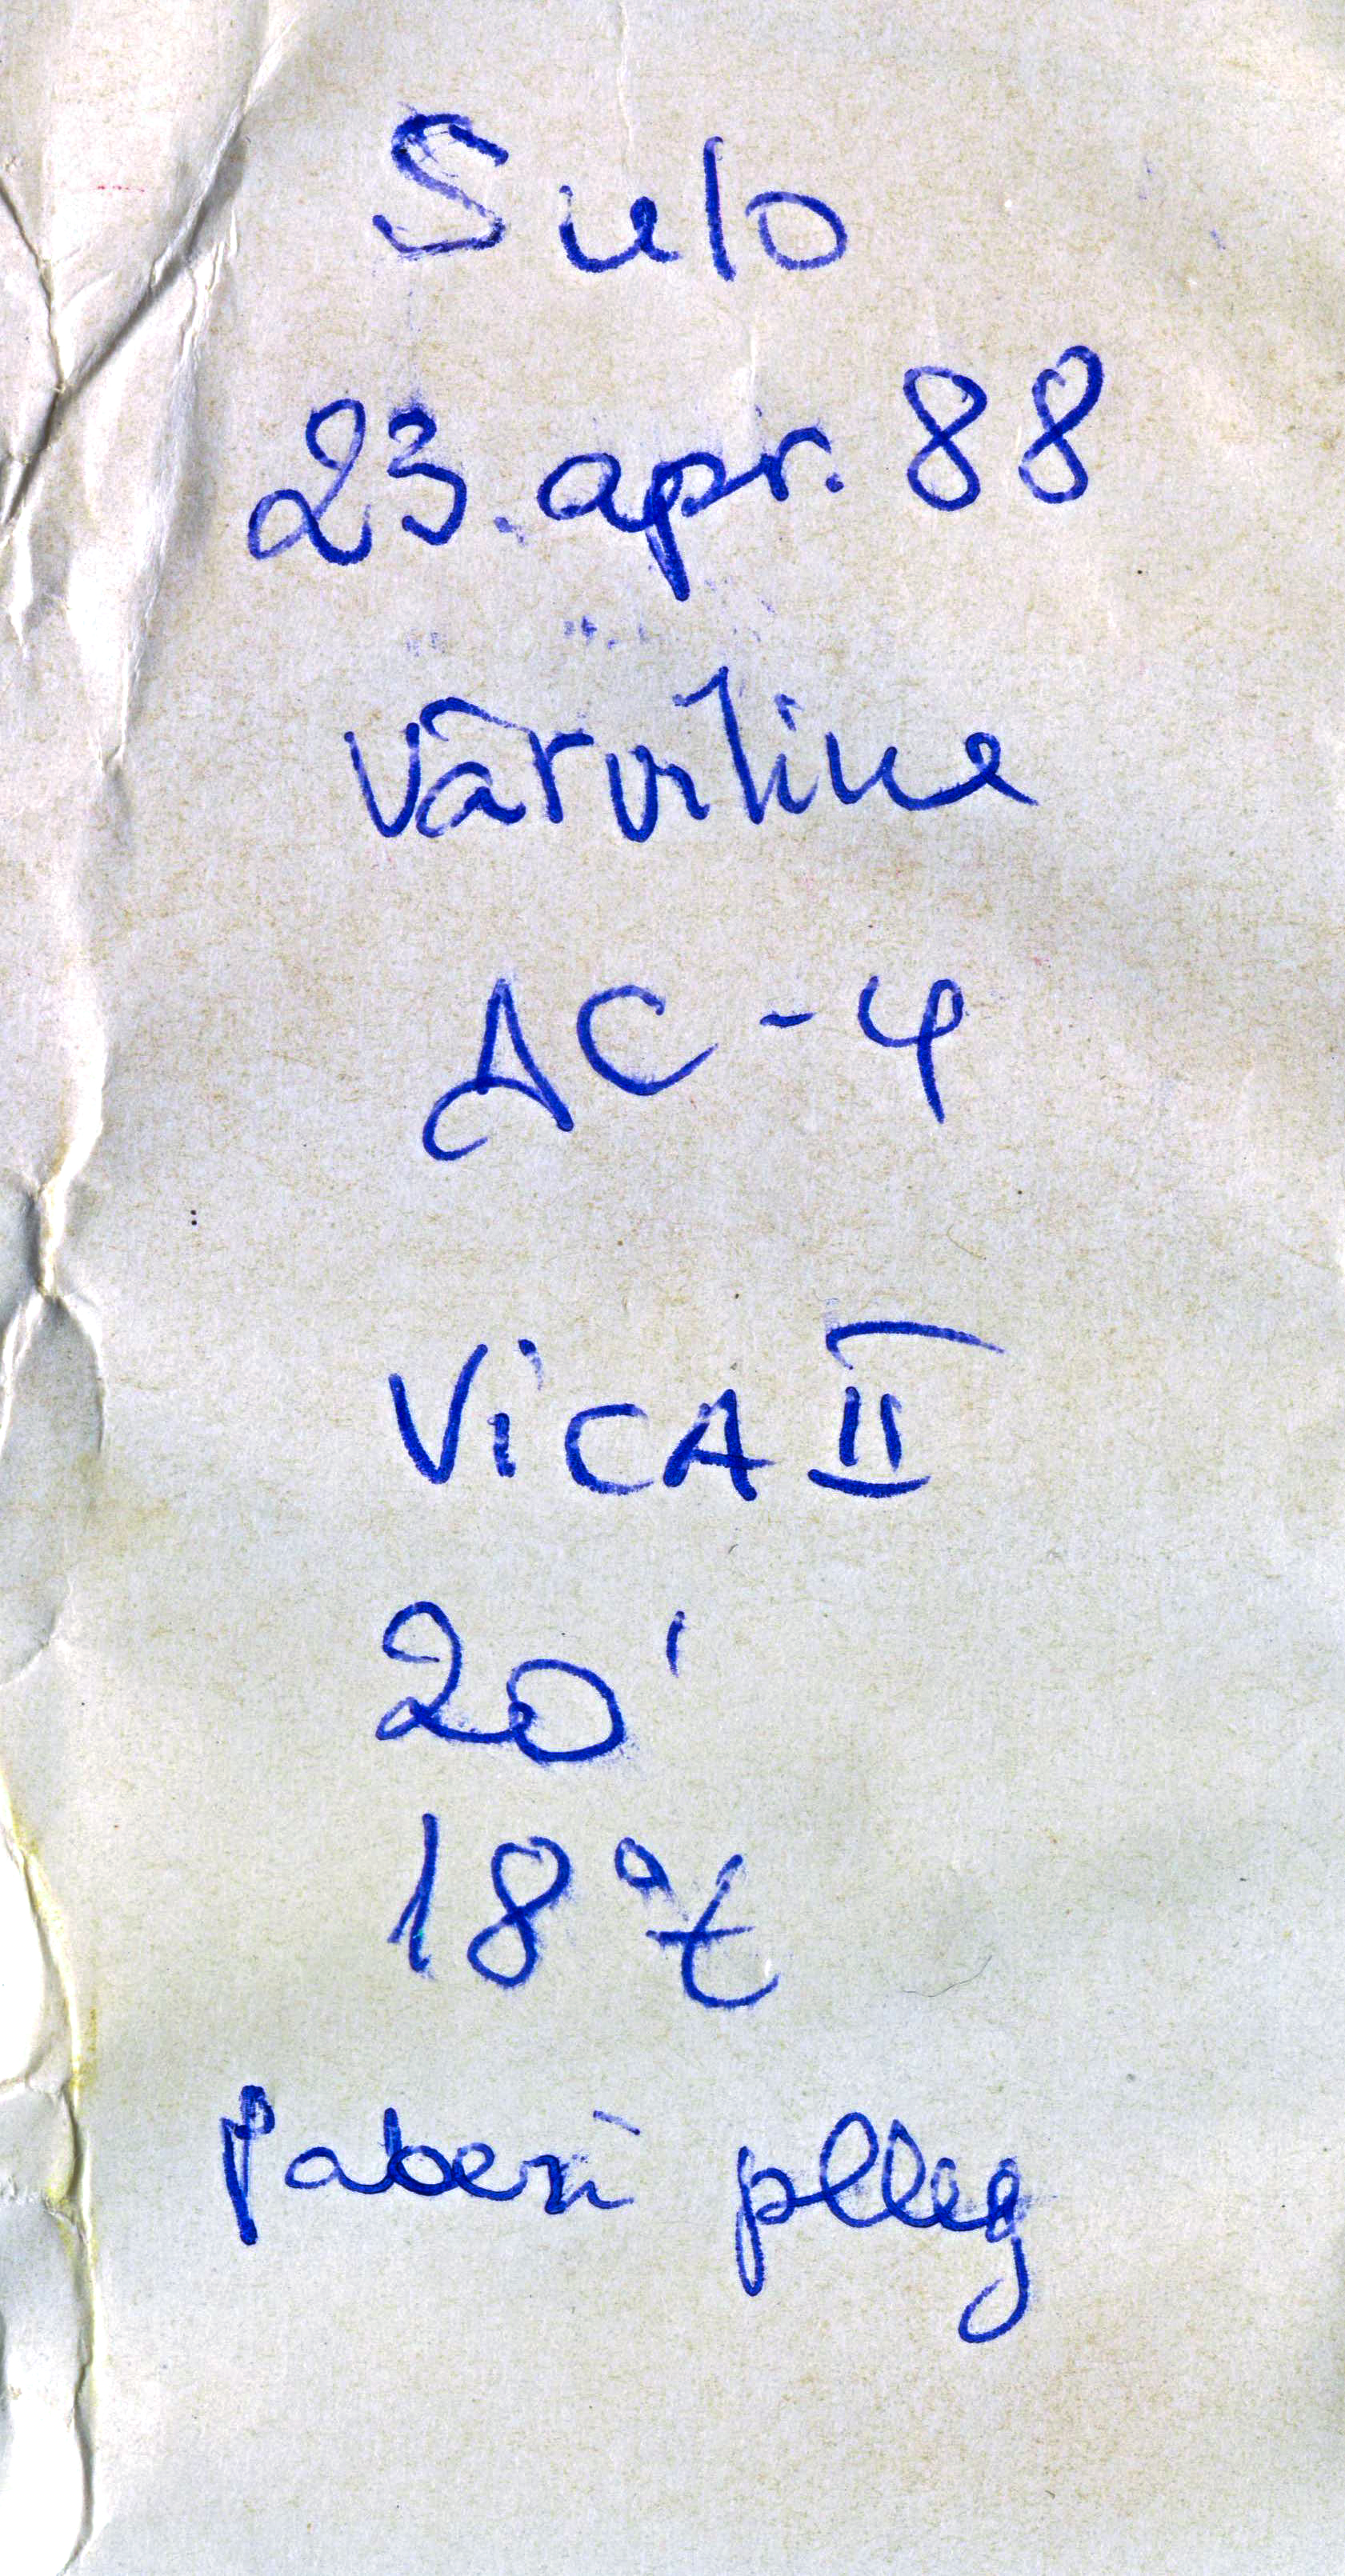 Sulo
23. apr. 88
Värviline
ДC-4
ViCA II
20'
18°t
Paberi